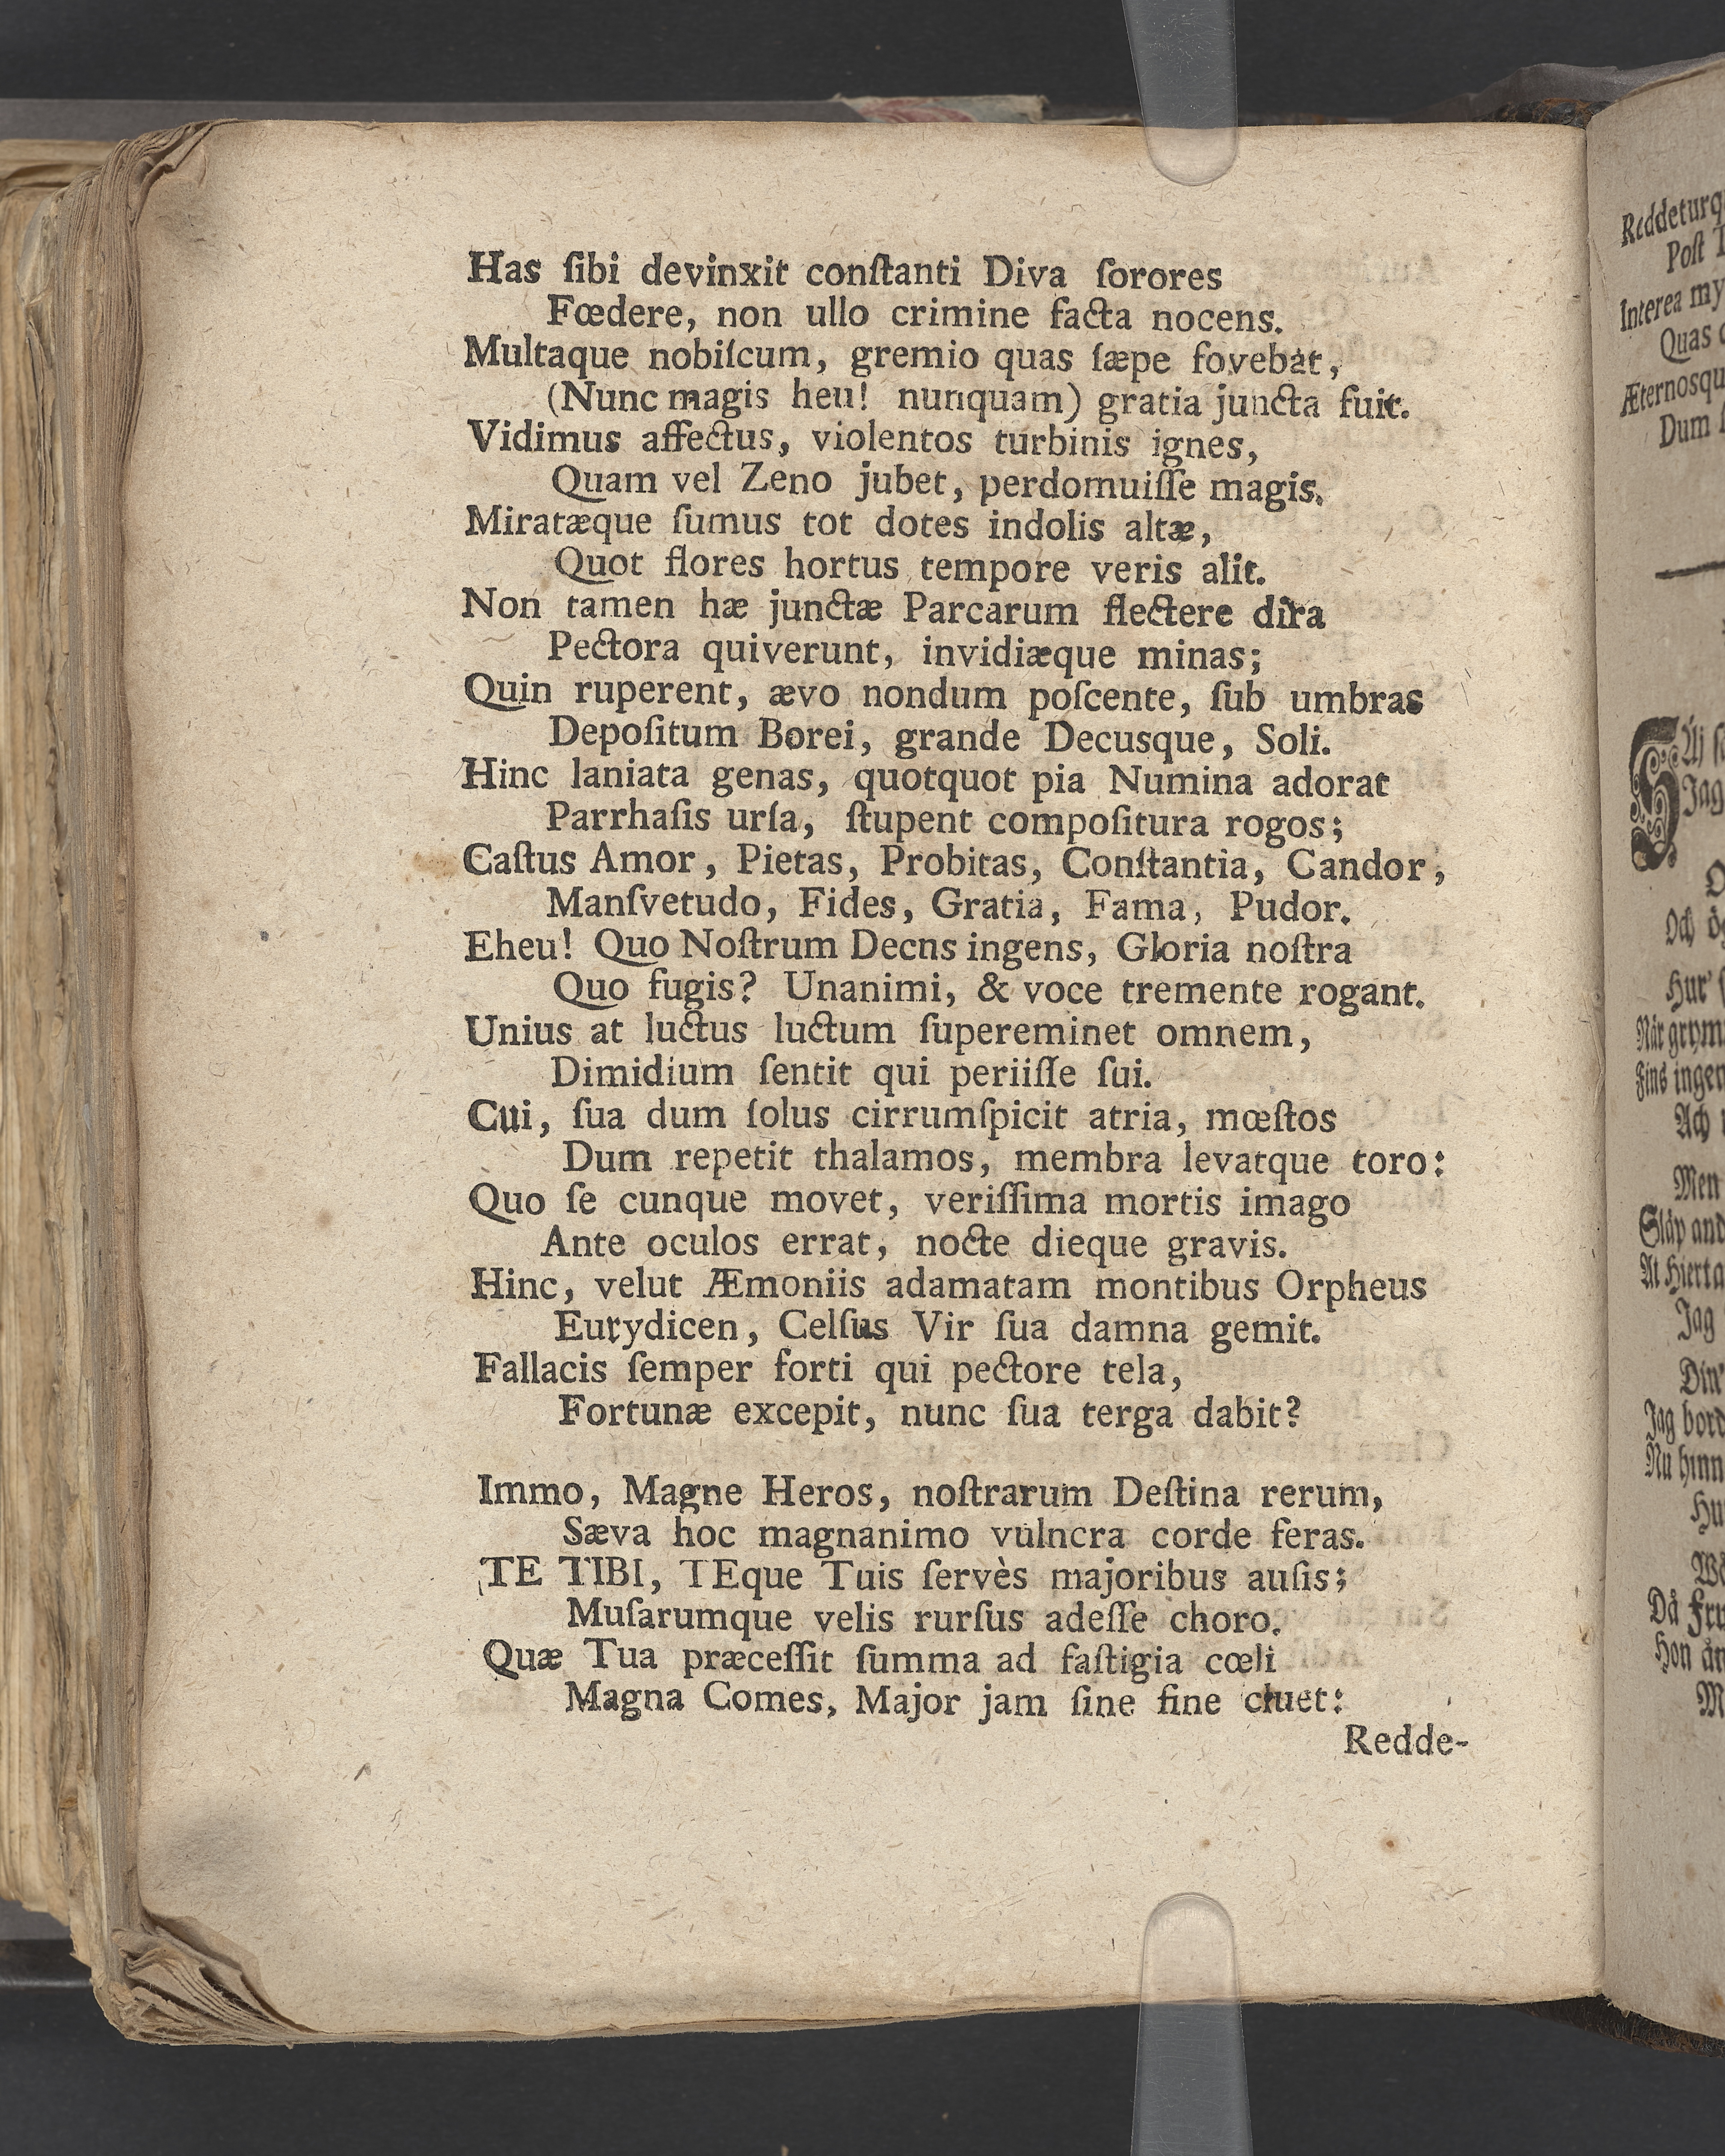 Has ſibi devinxit conſtanti Diva ſorores
Fœdere, non ullo crimine facta nocens.
Multaque nobiſcum, gremio quas ſæpe fovebat,
(Nunc magis heu! nunquam) gratia juncta fuit.
Vidimus affectus, violentos turbinis ignes,
Quam vel Zeno jubet, perdomuiſſe magis.
Miratæque ſumus tot dotes indolis altæ,
Quot flores hortus tempore veris alit.
Non tamen hæ junctæ Parcarum flectere dira
Pectora quiverunt, invidiæque minas;
Quin ruperent, ævo nondum poſcente, ſub umbras
Depoſitum Borei, grande Decusque, Soli.
Hinc laniata genas, quotquot pia Numina adorat
Parrhaſis urſa, ſtupent compoſitura rogos;
Caſtus Amor, Pietas, Probitas, Conſtantia, Candor,
Manſvetudo, Fides, Gratia, Fama, Pudor.
Eheu! Quo Noſtrum Decns ingens, Gloria noſtra
Quo fugis? Unanimi, & voce tremente rogant.
Unius at luctus luctum ſupereminet omnem,
Dimidium ſentit qui periiſſe ſui.
Cui, ſua dum ſolus cirrumſpicit atria, mœſtos
Dum repetit thalamos, membra levatque toro:
Quo ſe cunque movet, veriſſima mortis imago
Ante oculos errat, nocte dieque gravis.
Hinc, velut Æmoniis adamatam montibus Orpheus
Eurydicen, Celſus Vir ſua damna gemit.
Fallacis ſemper forti qui pectore tela,
Fortunæ excepit, nunc ſua terga dabit?
Immo, Magne Heros, noſtrarum Deſtina rerum,
Sæva hoc magnanimo vulnera corde feras.
TE TIBI, TEque Tuis ſervès majoribus auſis;
Muſarumque velis rurſus adeſſe choro.
Quæ Tua præceſſit ſumma ad faſtigia cœli
Magna Comes, Major jam ſine fine cluet:
Redde-
Reddeturq
Poſt
Interea my
Quas
Æternosqu
Dum
Jag
Och
Hur'
När grym
Fins inger
Ach
Men
Släp and
At Hierta
Jag
Din'
Jag bord
Nu hinn
Hu
Då Fru
Hon är